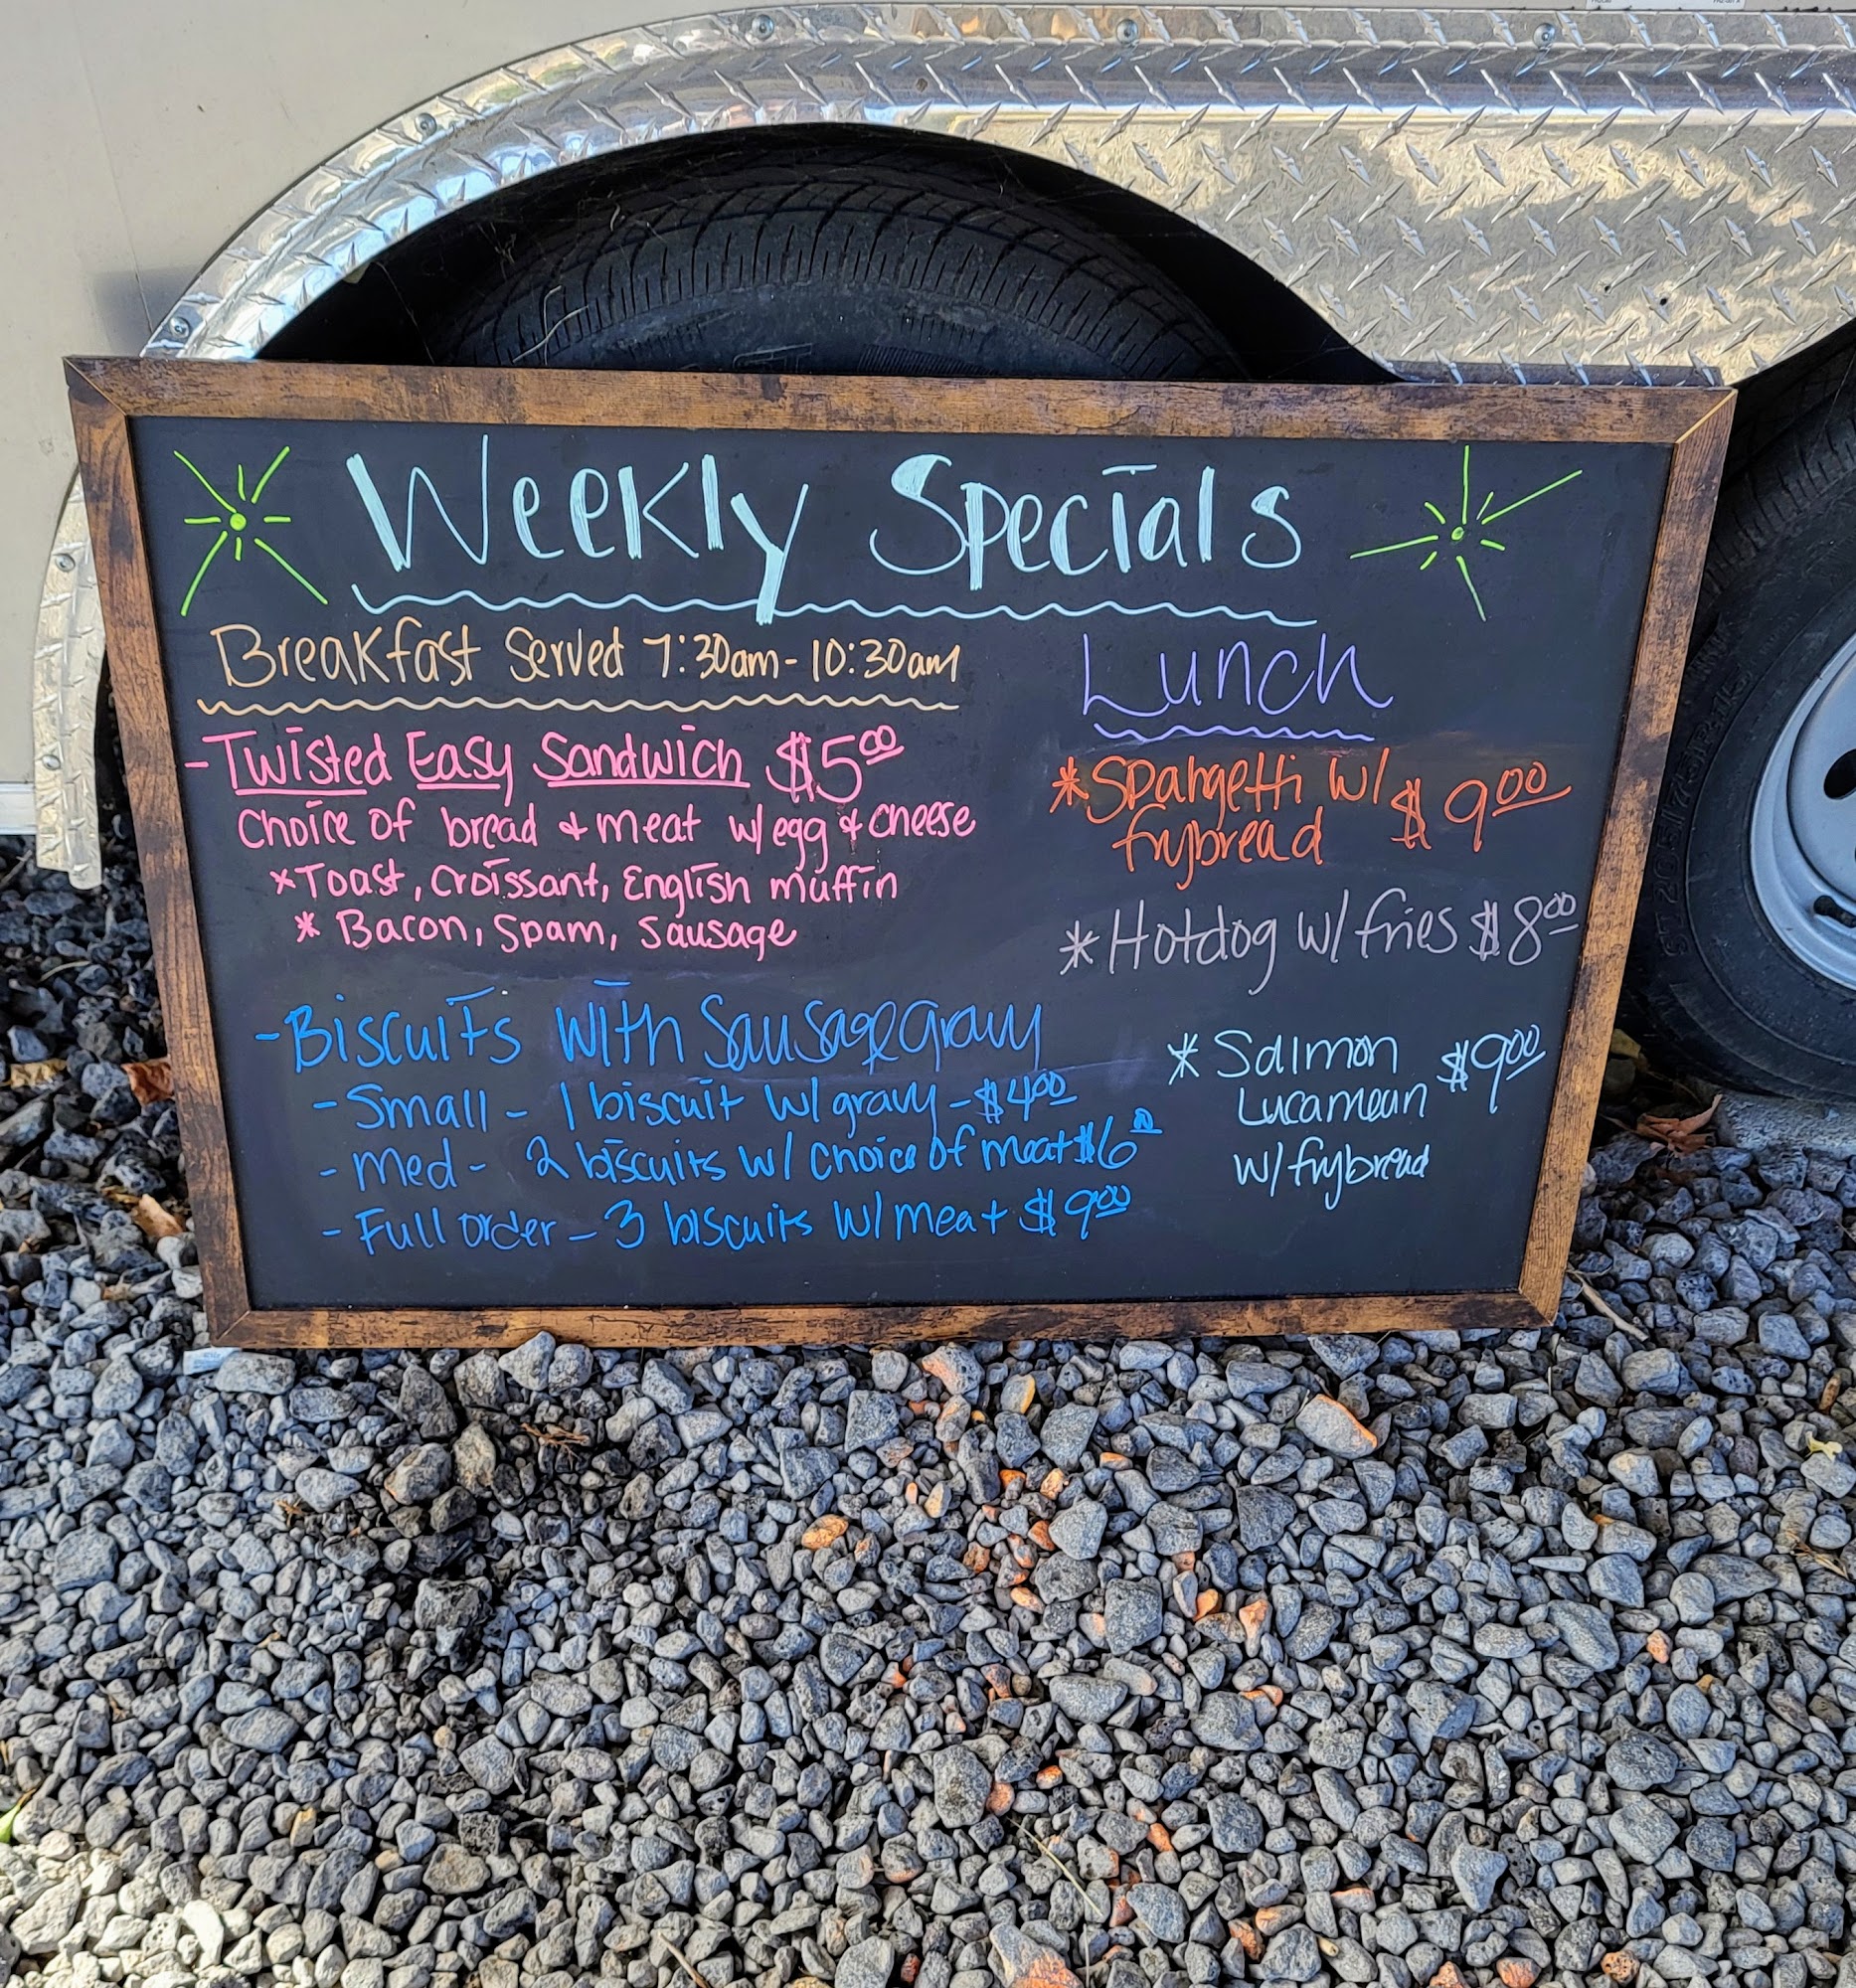 Weekly Specials
Breakfast Served 7:30am-10:30am
-Twisted Easy Sandwich $5.00
Choice of bread & meat w/egg & cheese
*Toast, Croissant, English muffin
* Bacon, Spam, Sausage
-Biscuits with Sausage gravy
-Small - 1 biscuit w/ gravy - $4.00
-Med - 2 biscuits w/ choice of meat $6.00
-Full order - 3 biscuits w/ meat $9.00
Lunch
*Spahgetti w/ $9.00
frybread
*Hotdog w/ fries $8.00
*Salmon $9.00
Lucamean
w/ frybread
ST 205/75R15